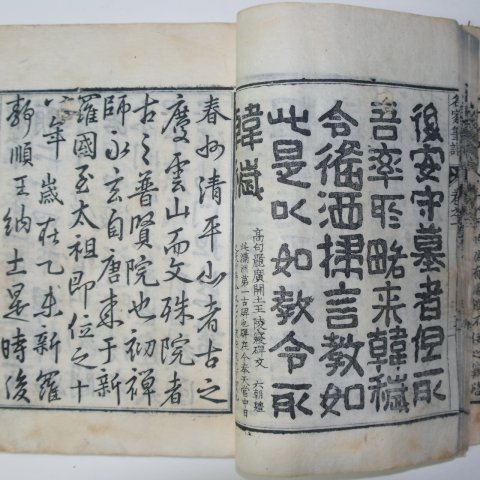 後安守墓者但取
吾率所略来韓穢
令俻洒掃言教如
此是以如教令取
韓穢
高句麗廣開土王陵碑文 六朝
滿洲第一古碑也碑在今奉天省
春州清平山者古之
慶雲山而文殊院者
古之普賢院也初禪
師永玄自唐来于新
羅國至太祖即位之十
八年歲在乙未新羅
靜順王納土是時後